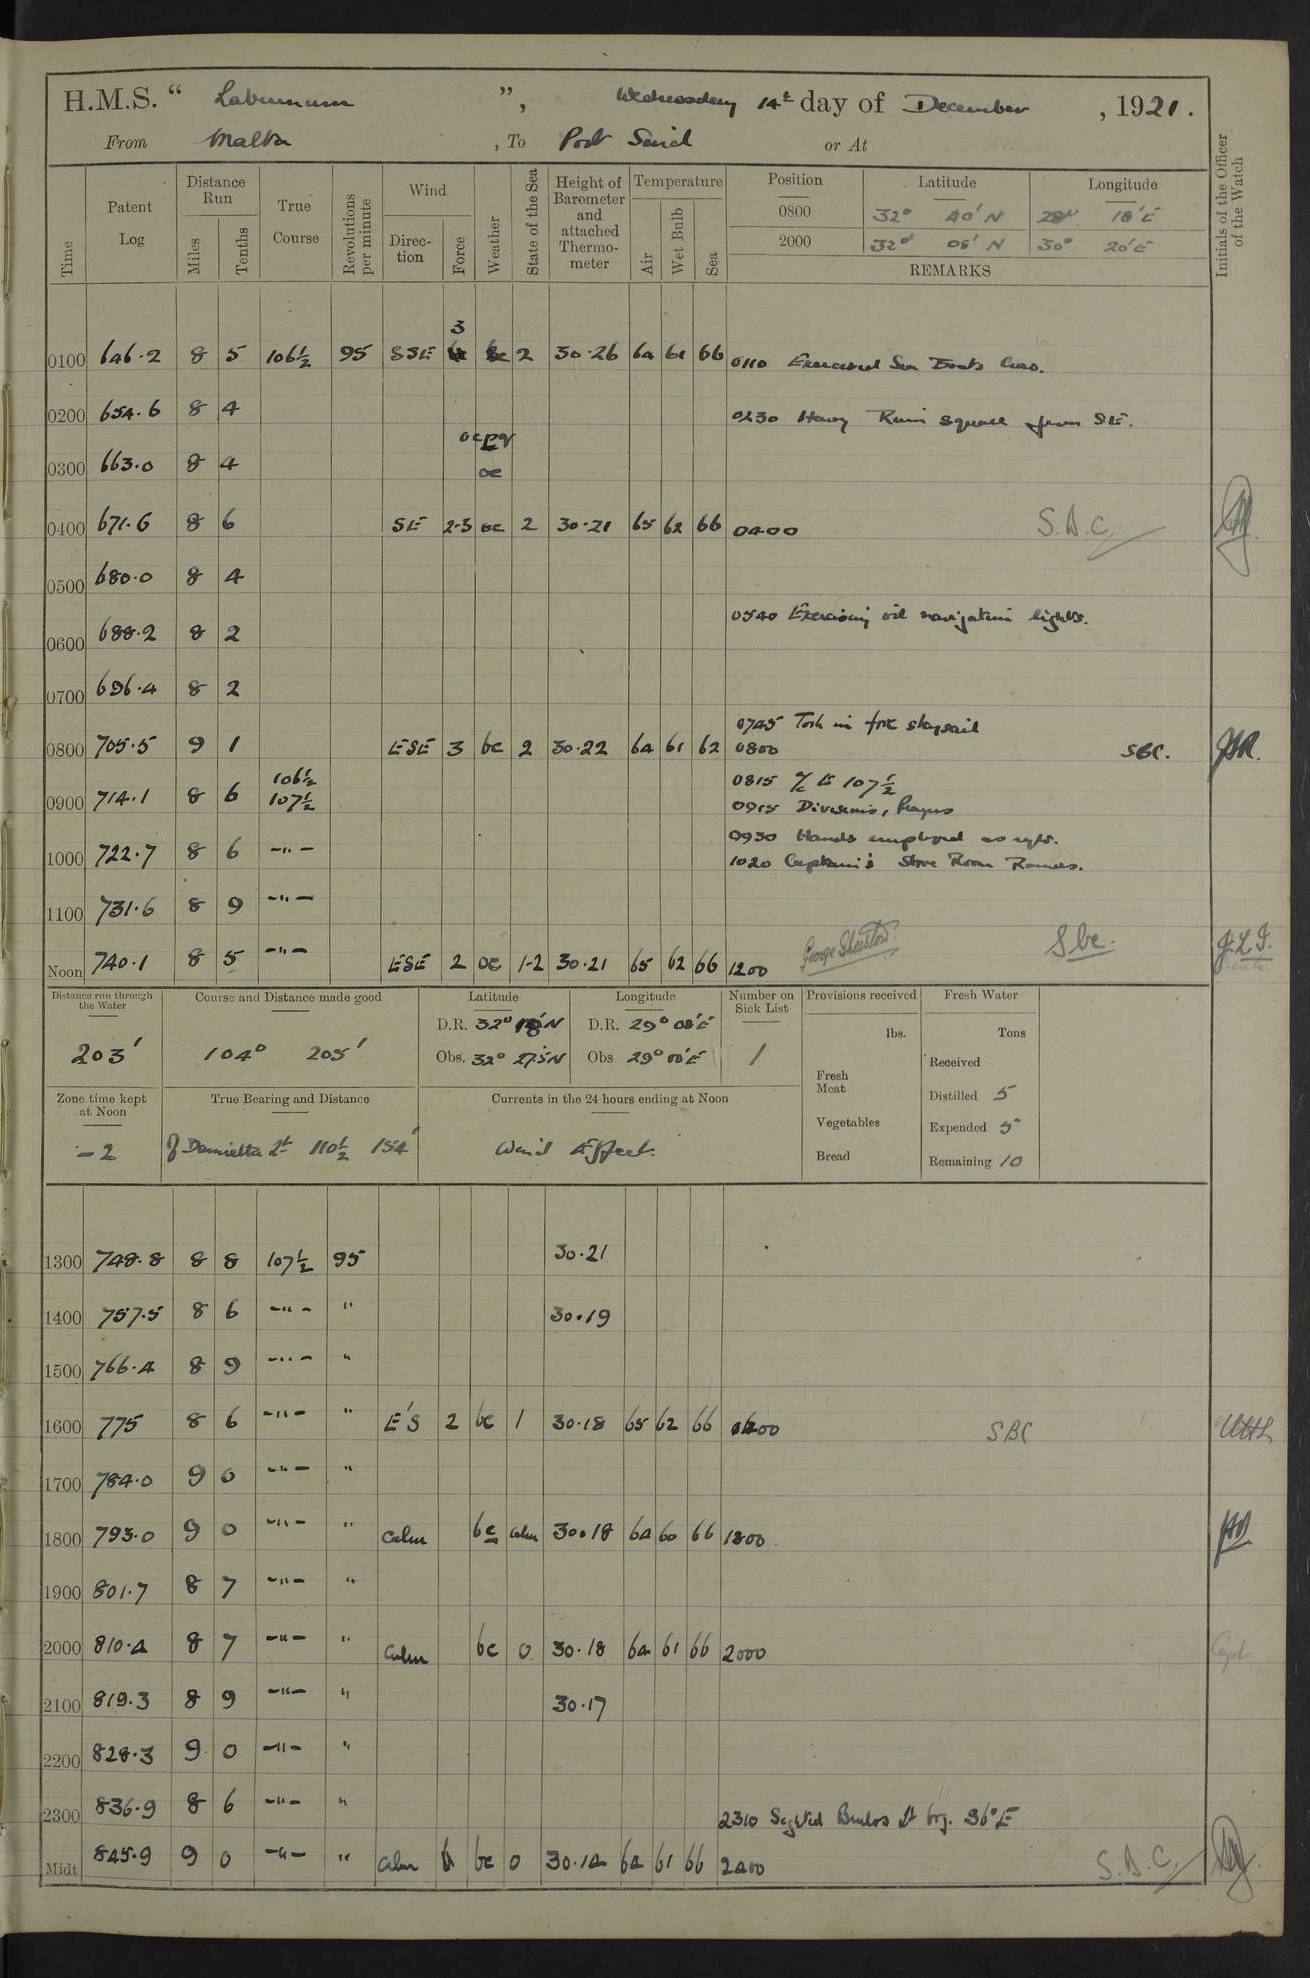 H.M.S. “ Laburnum ”, Wednesday 14th day of December , 1921.
From Malta , To Port Said or At
Time
Patent Log
Distance Run
Miles
Tenths
True Course
Revolutions per minute
Wind
Direc- tion
Force
Weather
State of the Sea
Height of Barometer and attached Thermo- meter
Temperature
Air
Wet Bulb
Sea
Position Latitude Longitude
0800 32° 40' N 28° 18' E
2000 32° 05' N 30° 20' E
REMARKS
Initials of the Officer of the Watch
3
0100 646.2 8 5 106½ 95 SSE bc 2 30.26 64 61 66 0110 Exercised Sea Boats Crew.
0200 654.6 8 4 0230 Heavy Rain squall from SE.
ocpq
0300 663.0 8 4 oc
0400 671.6 8 6 SE 2-3 oc 2 30.21 65 62 66 0400 S.B.C.
0500 680.0 8 4
0540 Exercising oil navigation lights.
0600 688.2 8 2
0700 696.4 8 2
0745 Took in fore staysail
0800 705.5 9 1 ESE 3 bc 2 30.22 64 61 62 0800 SBC.
106½ 0815 a/c to 107½
0900 714.1 8 6 107½ 0915 Divisions, Prayers
0930 Hands employed as reqte.
1000 722.7 8 6 -"- 1020 Captain's Store Room Rounds.
1100 731.6 8 9 -"-
Noon 740.1 8 5 -"- ESE 2 oc 1-2 30.21 65 62 66 1200 Sbc.
Distance run through the Water
203'
Course and Distance made good
104° 205'
Latitude
D.R. 32° 18' N
Obs. 32° 27.5' N
Longitude
D.R. 29° 08' E
Obs 29° 00' E
Number on Sick List
1
Provisions received
lbs.
Fresh Meat
Vegetables
Bread
Fresh Water
Tons
Received
Distilled 5
Expended 5
Remaining 10
Zone time kept at Noon
-2
True Bearing and Distance
of Damietta Lt 110½ 154'
Currents in the 24 hours ending at Noon
Wind Effect.
1300 748.8 8 8 107½ 95 30.21
1400 757.5 8 6 -"- " 30.19
1500 766.4 8 9 -"- "
1600 775 8 6 -"- " E'S 2 bc 1 30.18 65 62 66 1600 SBC
1700 784.0 9 0 -"- "
1800 793.0 9 0 -"- " Calm bc calm 30.18 64 60 66 1800
1900 801.7 8 7 -"- "
2000 810.4 8 7 -"- " Calm bc 0 30.18 64 61 66 2000
2100 819.3 8 9 -"- " 30.17
2200 828.3 9 0 -"- "
2300 836.9 8 6 -"- "
2310 Sighted Burlos Lt brg. S6°E
Midt 845.9 9 0 -"- " Calm bc 0 30.14 64 61 66 2400 S.B.C.